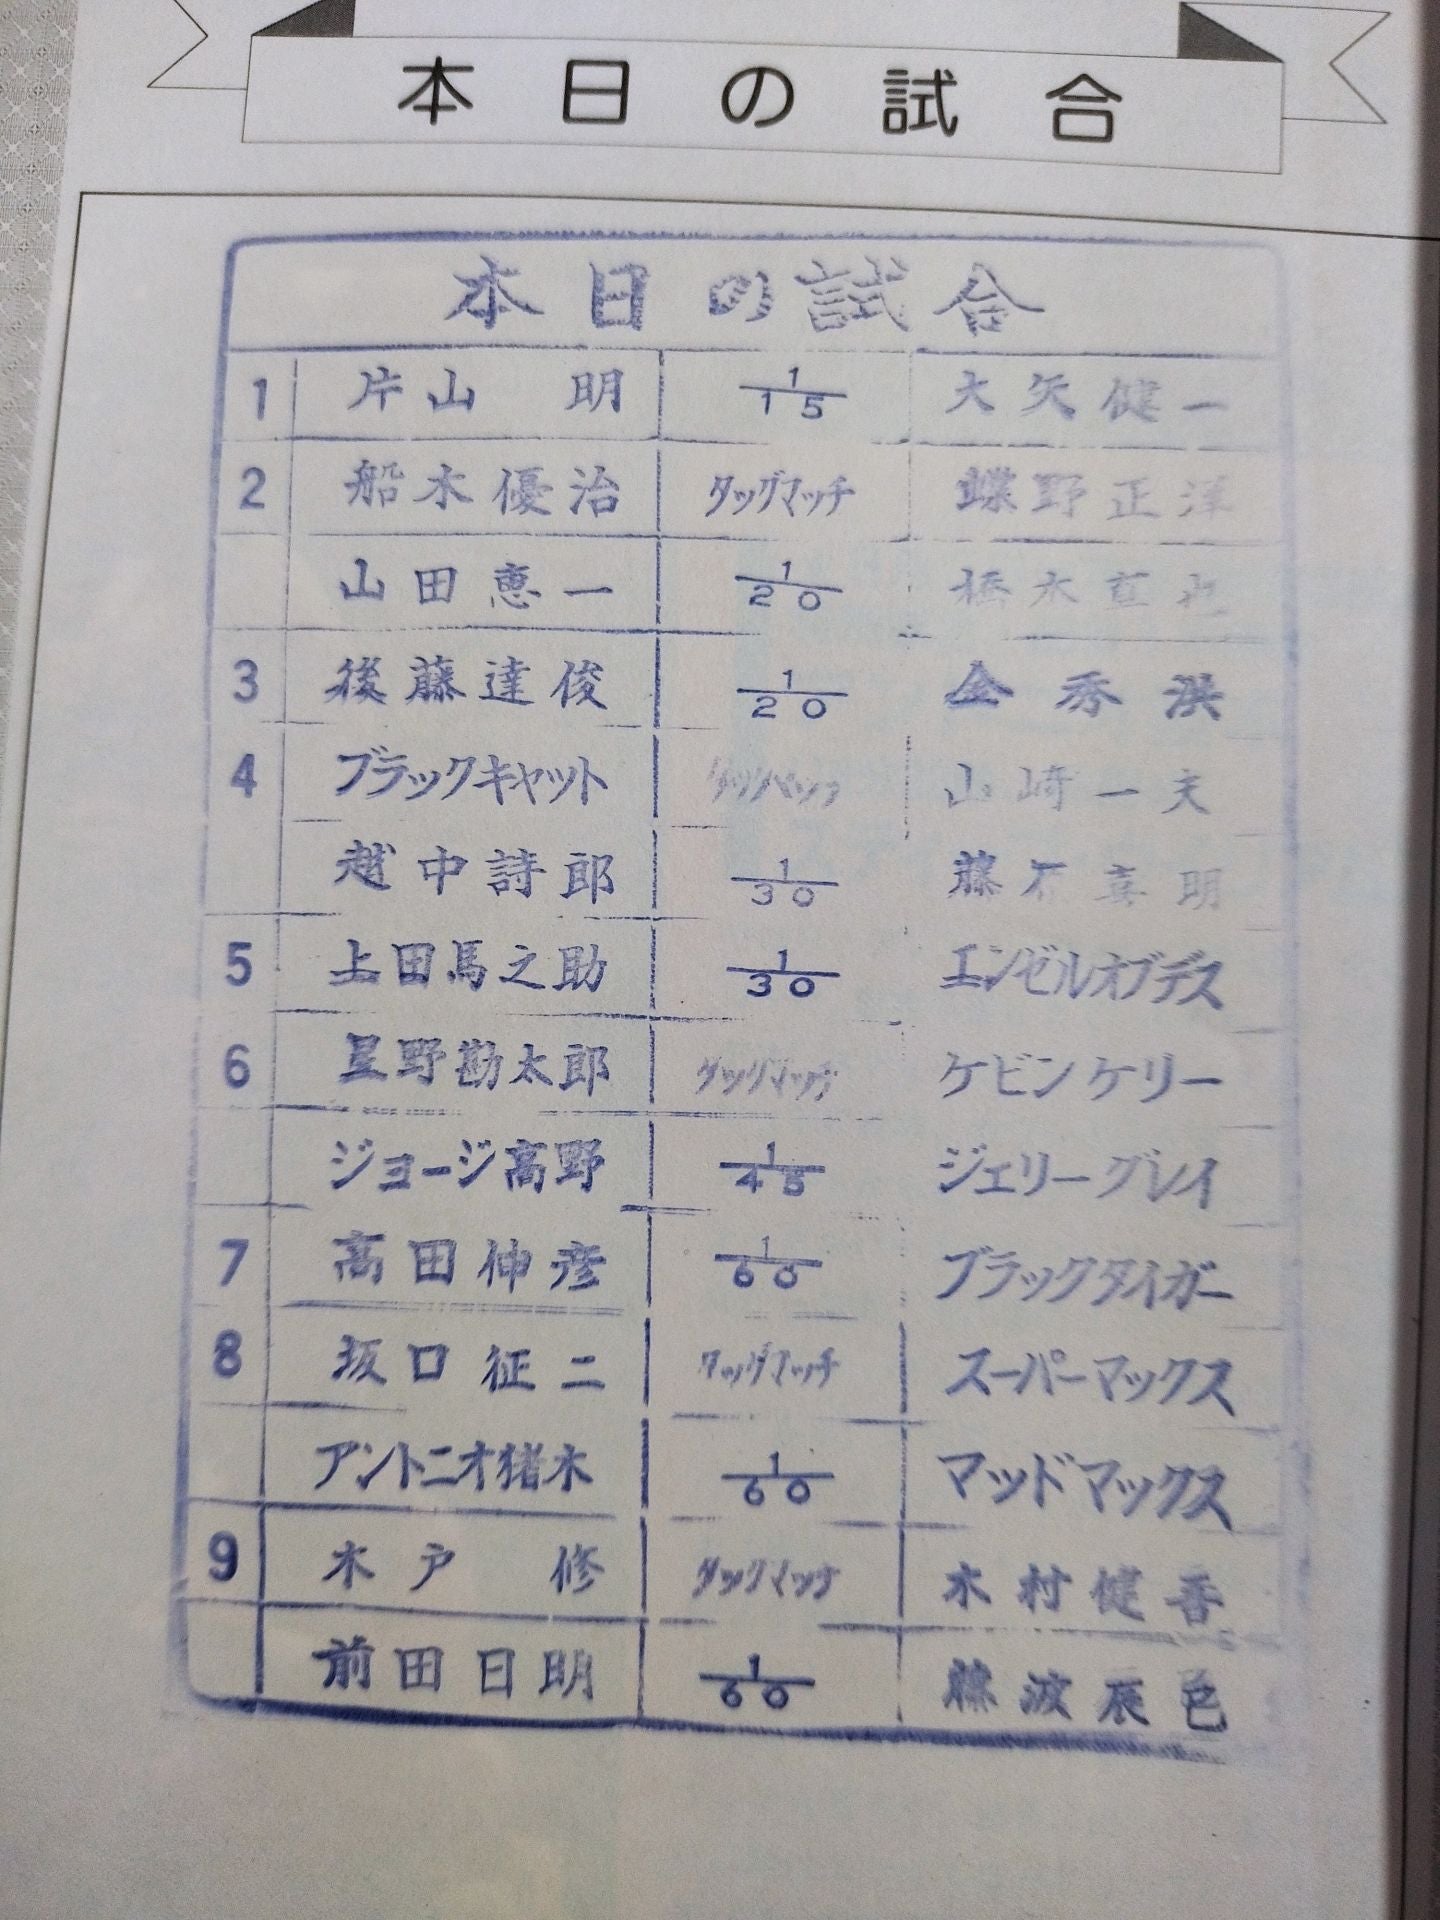 本日の試合
本日の試合
1 片山 明 1/15 大矢健一
2 船木優治 タッグマッチ 蝶野正洋
山田恵一 1/20 橋本真也
3 後藤達俊 1/20 金秀洪
4 ブラックキャット タッグマッチ 山崎一夫
越中詩郎 1/30 藤原喜明
5 上田馬之助 1/30 エンゼルオブデス
6 星野勘太郎 タッグマッチ ケビンケリー
ジョージ高野 1/45 ジェリーグレイ
7 高田伸彦 1/60 ブラックタイガー
8 坂口征二 タッグマッチ スーパーマックス
アントニオ猪木 1/60 マッドマックス
9 木戸 修 タッグマッチ 木村健吾
前田日明 1/60 藤波辰巳